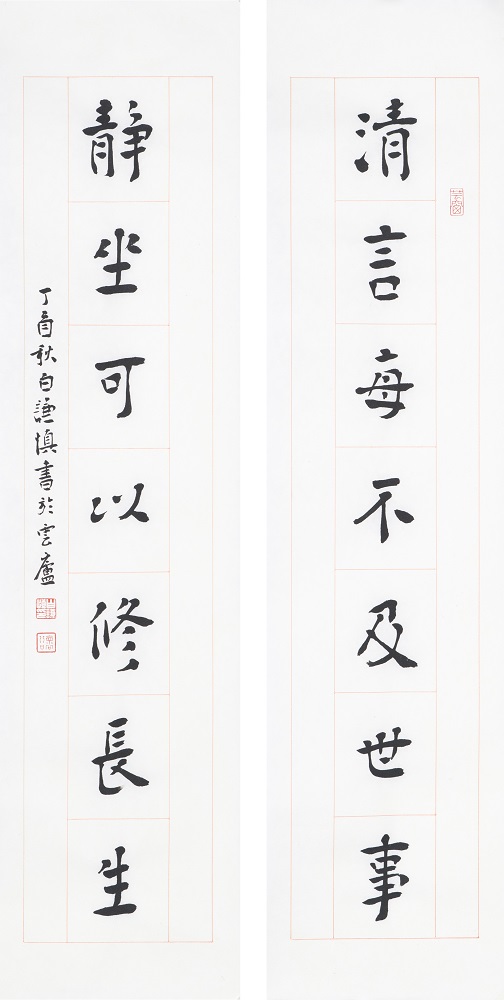 清言每不及世事
靜坐可以修長生
丁酉秋白謙慎書於雲廬